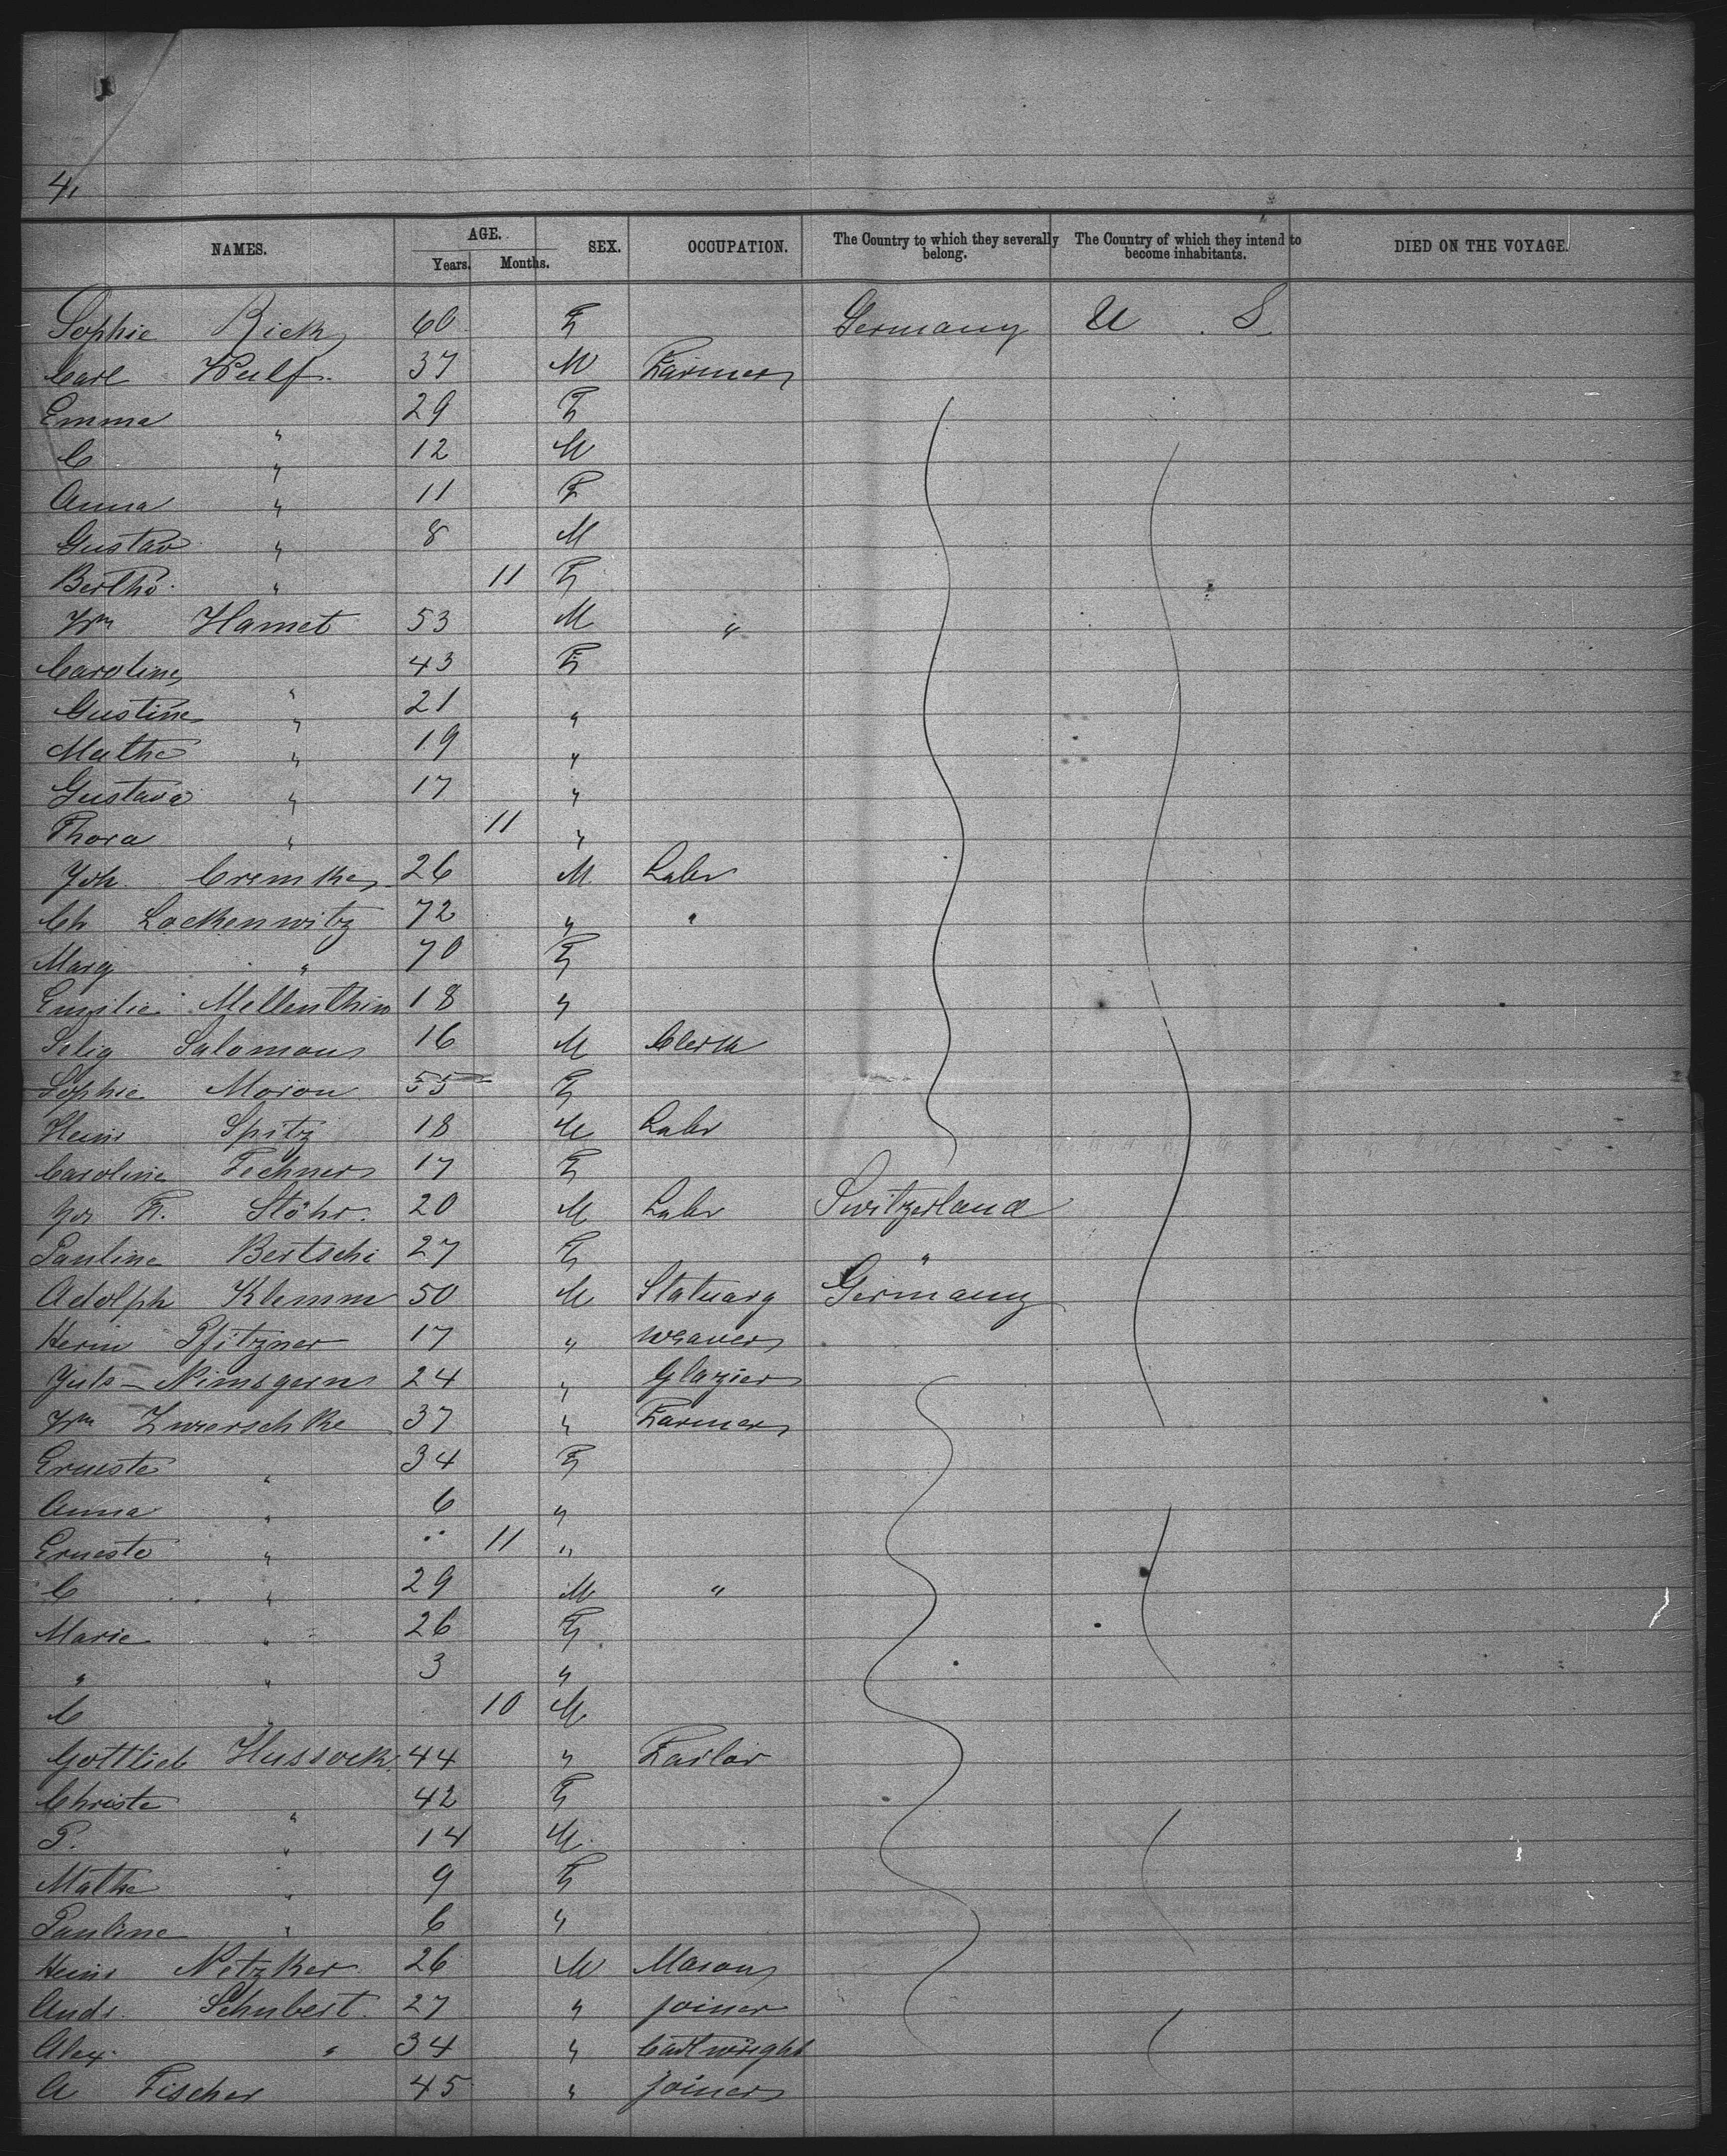 4,
NAMES. AGE. Years. Months. SEX. OCCUPATION. The Country to which they severally belong. The Country of which they intend to become inhabitants. DIED ON THE VOYAGE.
Sophie Rick 60 F Germany U. S.
Carl Wulf 37 M Farmer
Emma " 29 F
C " 12 M
Anna " 11 F
Gustav " 8 M
Bertha " 11 F
Wm Hamet 53 M "
Caroline " 43 F
Gustine " 21 "
Mathe " 19 "
Gustava " 17 "
Thora " 11 "
Joh. Cremke 26 M Labr
Ch Lockenwitz 72 " "
Marg " 70 F
Emilie Mellenthin 18 "
Selig Salomon 16 M Clerk
Sophie Moron 55 F
Heinr Spitz 18 M Labr
Caroline Fechner 17 F
F. Stöhr. 20 M Labr Switzerland
Pauline Bertschi 27 F "
Adolph Klemm 50 M Statuary Germany
Herm Pfitzner 17 " weaver
Juls Nimsgern 24 " Glazier
Wm Zwerschke 37 " Farmer
Erneste " 34 F
Anna " 6 "
Erneste " " 11 "
C " 29 M "
Marie " 26 F
" " 3 "
C " 10 M
Gottlieb Hussock 44 " Tailor
Christe " 42 F
P. " 14 M
Mathe " 9 F
Pauline " 6 "
Heinr Netzker 26 M Mason
Andr. Schubert 27 " joiner
Alex. " 34 " Cartwright
A Fischer 45 " joiner